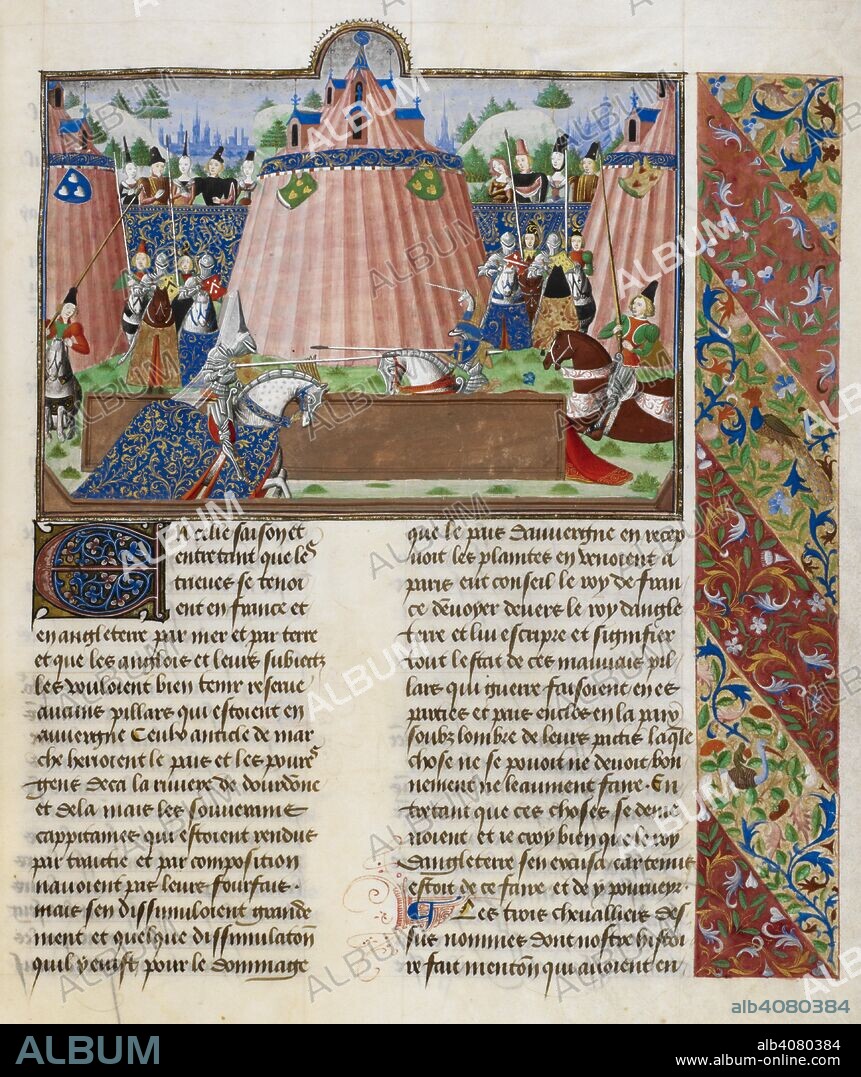 En celle saison et
entretant que les
trieues se tenoi
ent en france et
en angleterre par mer et par terre
et que les anglois et leurs subietz
les vouloient bien tenir reserue
aucuns pillars qui estoient en
auuergne Ceulx anticle de mar
che herioient le pais et les poures
gens deca la riuiere de dourdonc
et dela mais les souuerains
cappitaines qui estoient rendus
par traictie et par composition
nauoient pas leurs fourfais.
mais sen dissimuloient grande
ment et quelque dissimulation
quil y eust pour le dommage
que le pais dauuergne en recep
uoit les plaintes en venoient a
paris eut conseil le roy de fran
ce denuoyer deuers le roy dangle
terre et lui escripre et signifier
tout lestat de ces mauuais pil
lars qui guerre faisoient en es
parties et pais encles en la paix
soubz lombre de leurs pactis laqle
chose ne se pouoit ne deuoit bon
nement ne leaument faire. En
tretant que ces choses se deme
noient et ie croy bien que le roy
dangleterre sen excusa car tenus
estoit de ce faire et de y pourueyr.
Les trois cheualliers des
sus nommes dont nostre histoi
re fait mention qui auoient en
ALBUM
alb4080384
ALBUM
alb4080384
www.album-online.com